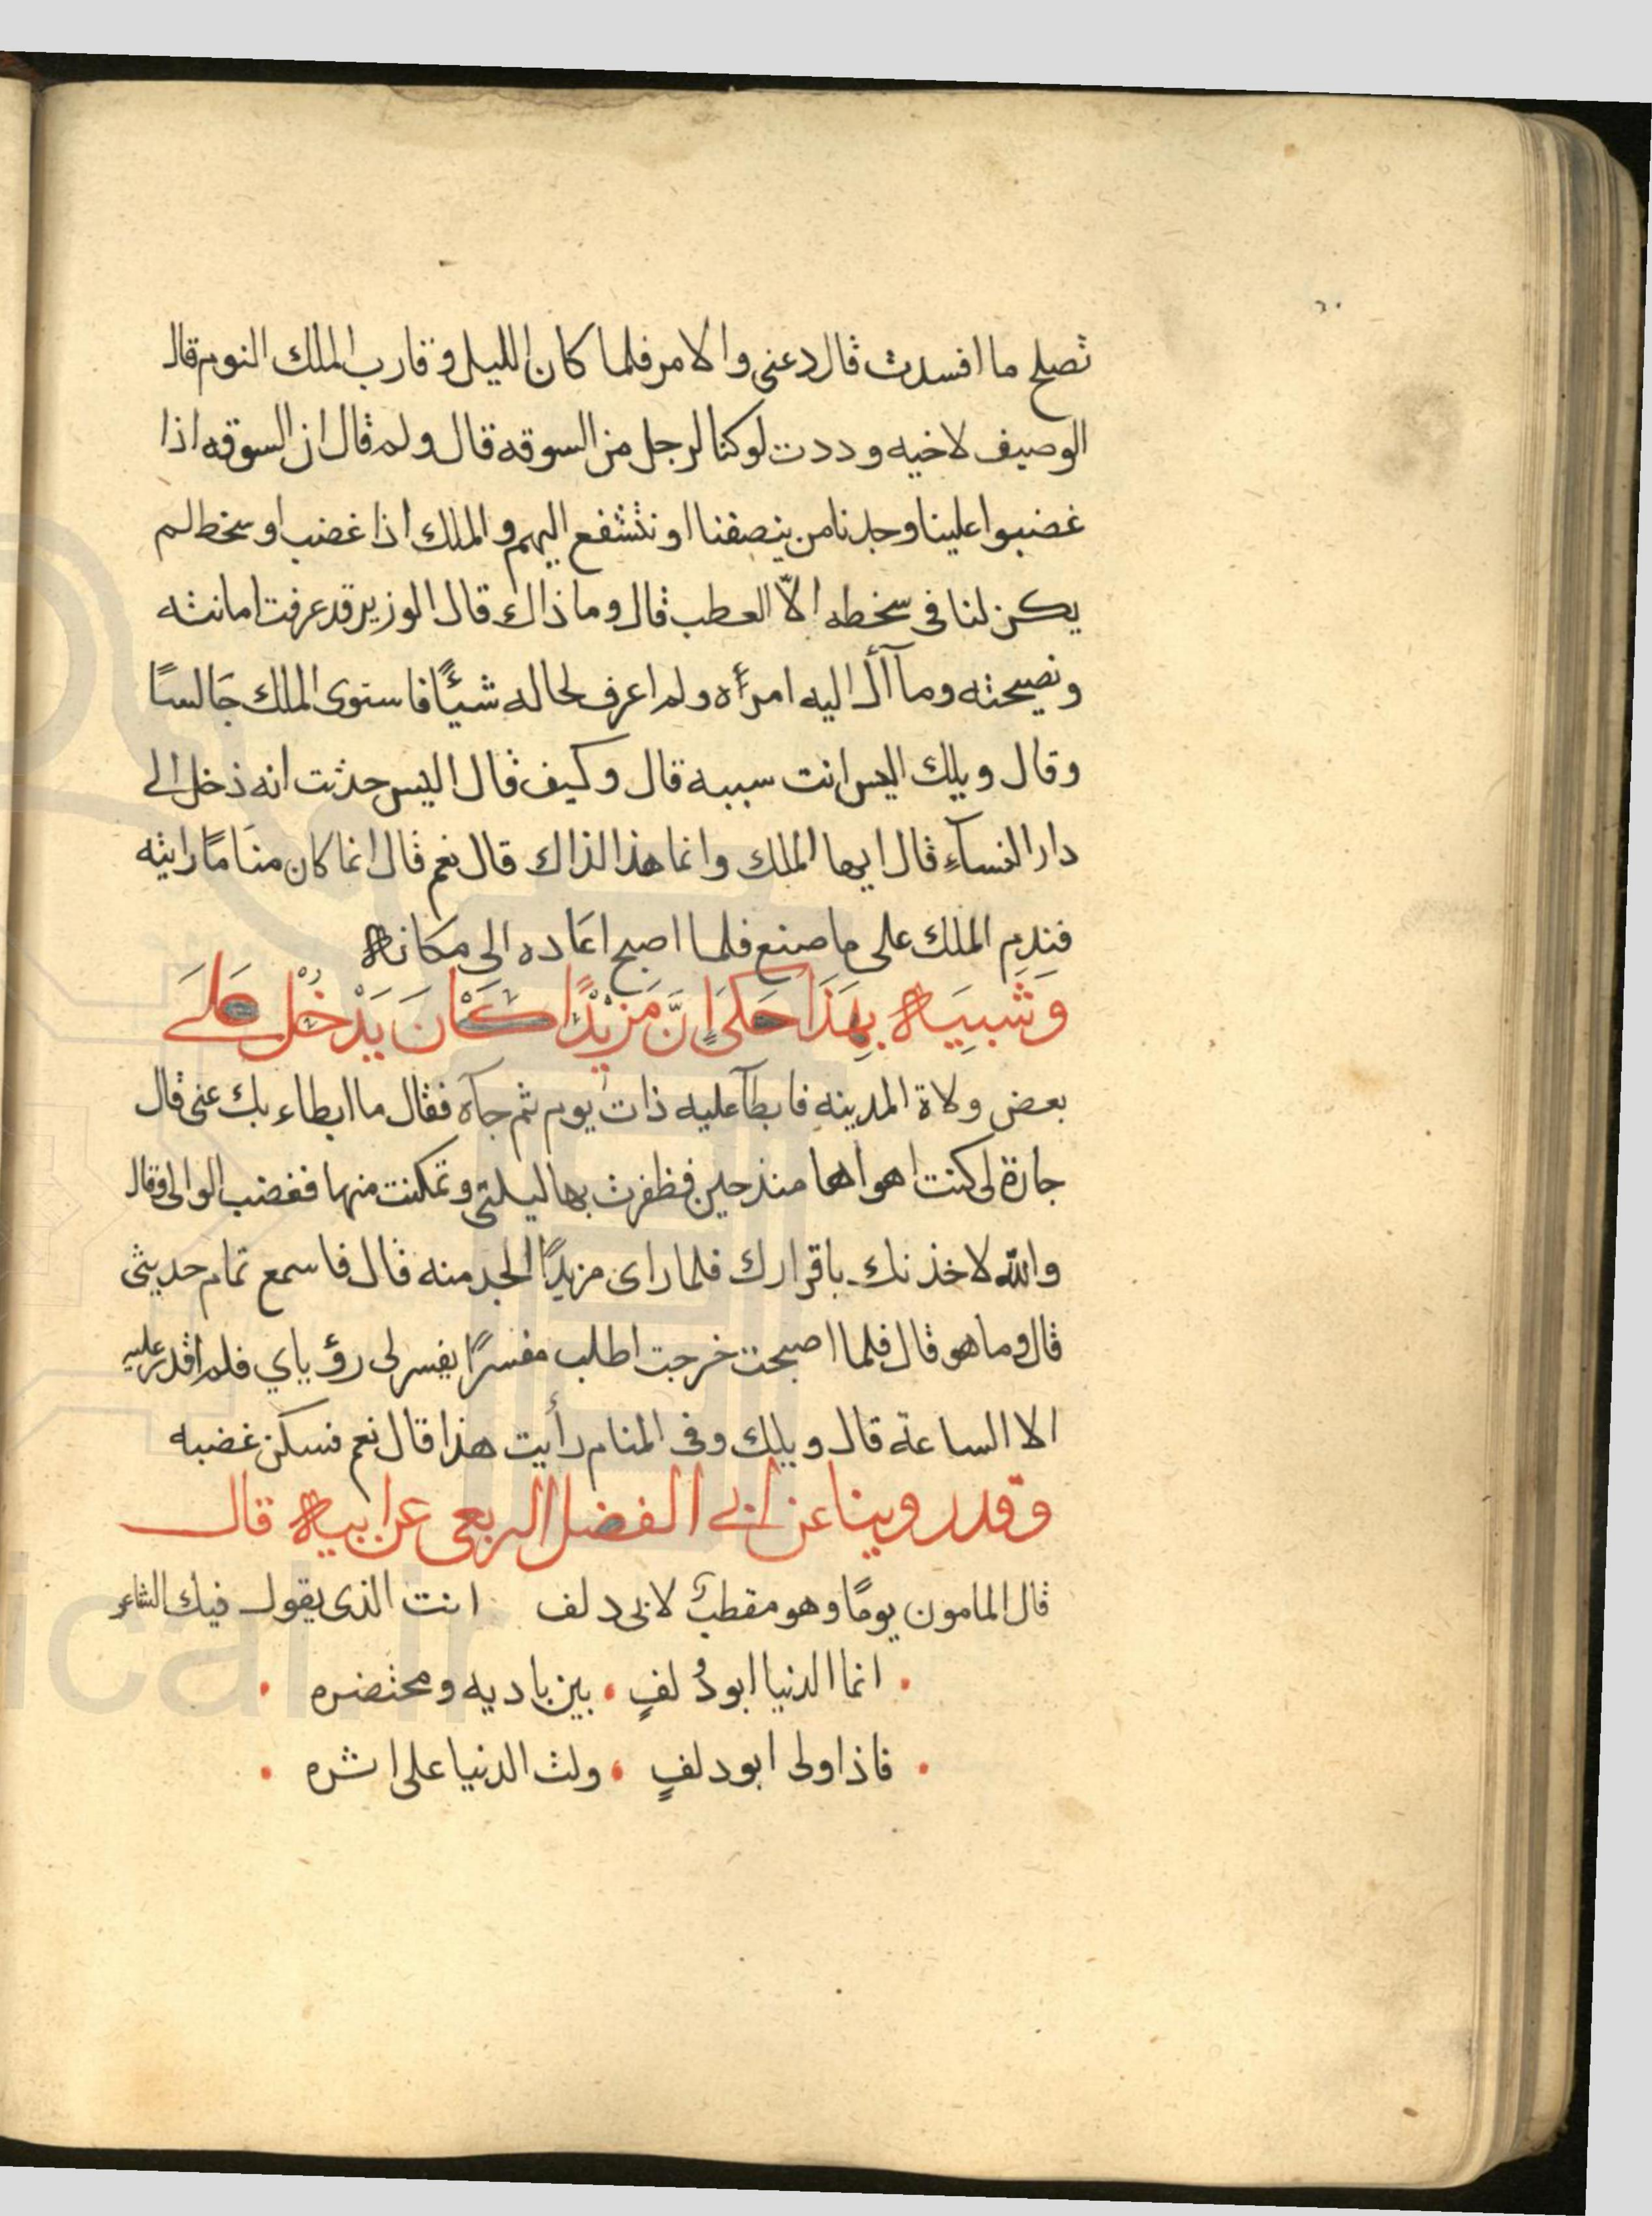 تصلح ما افسدت قال دعنى والامر فلما كان الليل وقارب الملك النوم قال
الوصيف لاخيه وددت لو كنا لرجل من السوقه قال ولم قال ان السوقه اذا
غضبوا علينا وجدنا من ينصفنا او نتشفع اليهم والملك اذا غضب او سخط لم
يكن لنا فى سخطه الاّ العطب قال وما ذاك قال الوزير قد عرفت امانته
ونصيحته وما آل اليه امرأه ولم اعرف لحاله شيئًا فاستوى الملك جَالسًا
وقال ويلك اليس انت سببه قال وكيف قال اليس حدثت انه ذخل الى
دار النسآءِ قال ايها الملك وانما هذا لذاك قال نعم قال انما كان منَامًا رايته
فنَدِم الملك على ما صنع فلما اصبح اعَاده الى مكَانه
وَشَبيَه بِهَذَا حَكَى اِنَّ مَزيْدًا كَانَ يَدْخُلْ عَلَى
بعض ولاة المدينه فابطآ عليه ذات يوم ثم جآه فقال ما ابطاء بك عنى قال
جارة لى كنت اهواها منذ حين فظفرت بها ليلتى وتمكنت منها فغضب الوالى وقال
والله لاخذنك باقرارك فلما راى مزيدًا الجد منه قال فاسمع تمام حديثى
قال وما هو قال فلما اصبحت خرجت اطلب مفسرًا يفسر لى رؤياي فلم اقدر عليه
الا الساعة قال ويلك وفى المنام رأيت هذا قال نعم فسكن غضبه
وقد روينا عن ابى الفضل الربعى عن ابيه قال
قال المامون يومًا وهو مقطب لابى دلف انت الذى يقول فيك الشاعر
انما الدنيا ابودُ لفٍ • بين باديه ومحتضره
فاذا ولى ابودلفٍ • ولت الدنيا على اثره